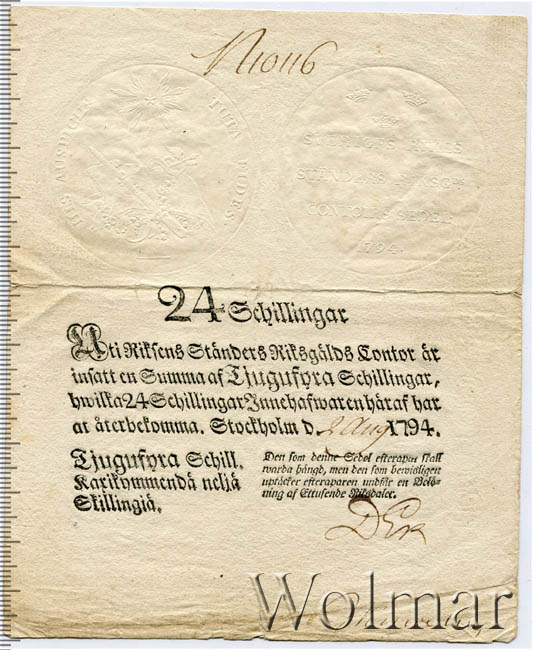 N 10116
HIS AUSPICIIS TUTA FIDES.
SVERIGES RIKES
STÄNDERS RIKSG:DS
CONTOIRS SEDEL
1794.
24 Schillingar
Uti Riksens Ständers Riksgälds Contor är
insatt en Summa af Tjugufyra Schillingar,
hwilka 24 Schillingar Innehafwaren häraf har
at återbekomma. Stockholm d. 2 Aug 1794.
Tjugufyra Schill.
Kaxikommendä neljä
Skillingiä.
Den som denne Sedel efterapar skall
warda hängd, men den som bewisligen
uptäcker efteraparen undfår en Belö-
ning af Ettusende Riksdaler.
Wolmar